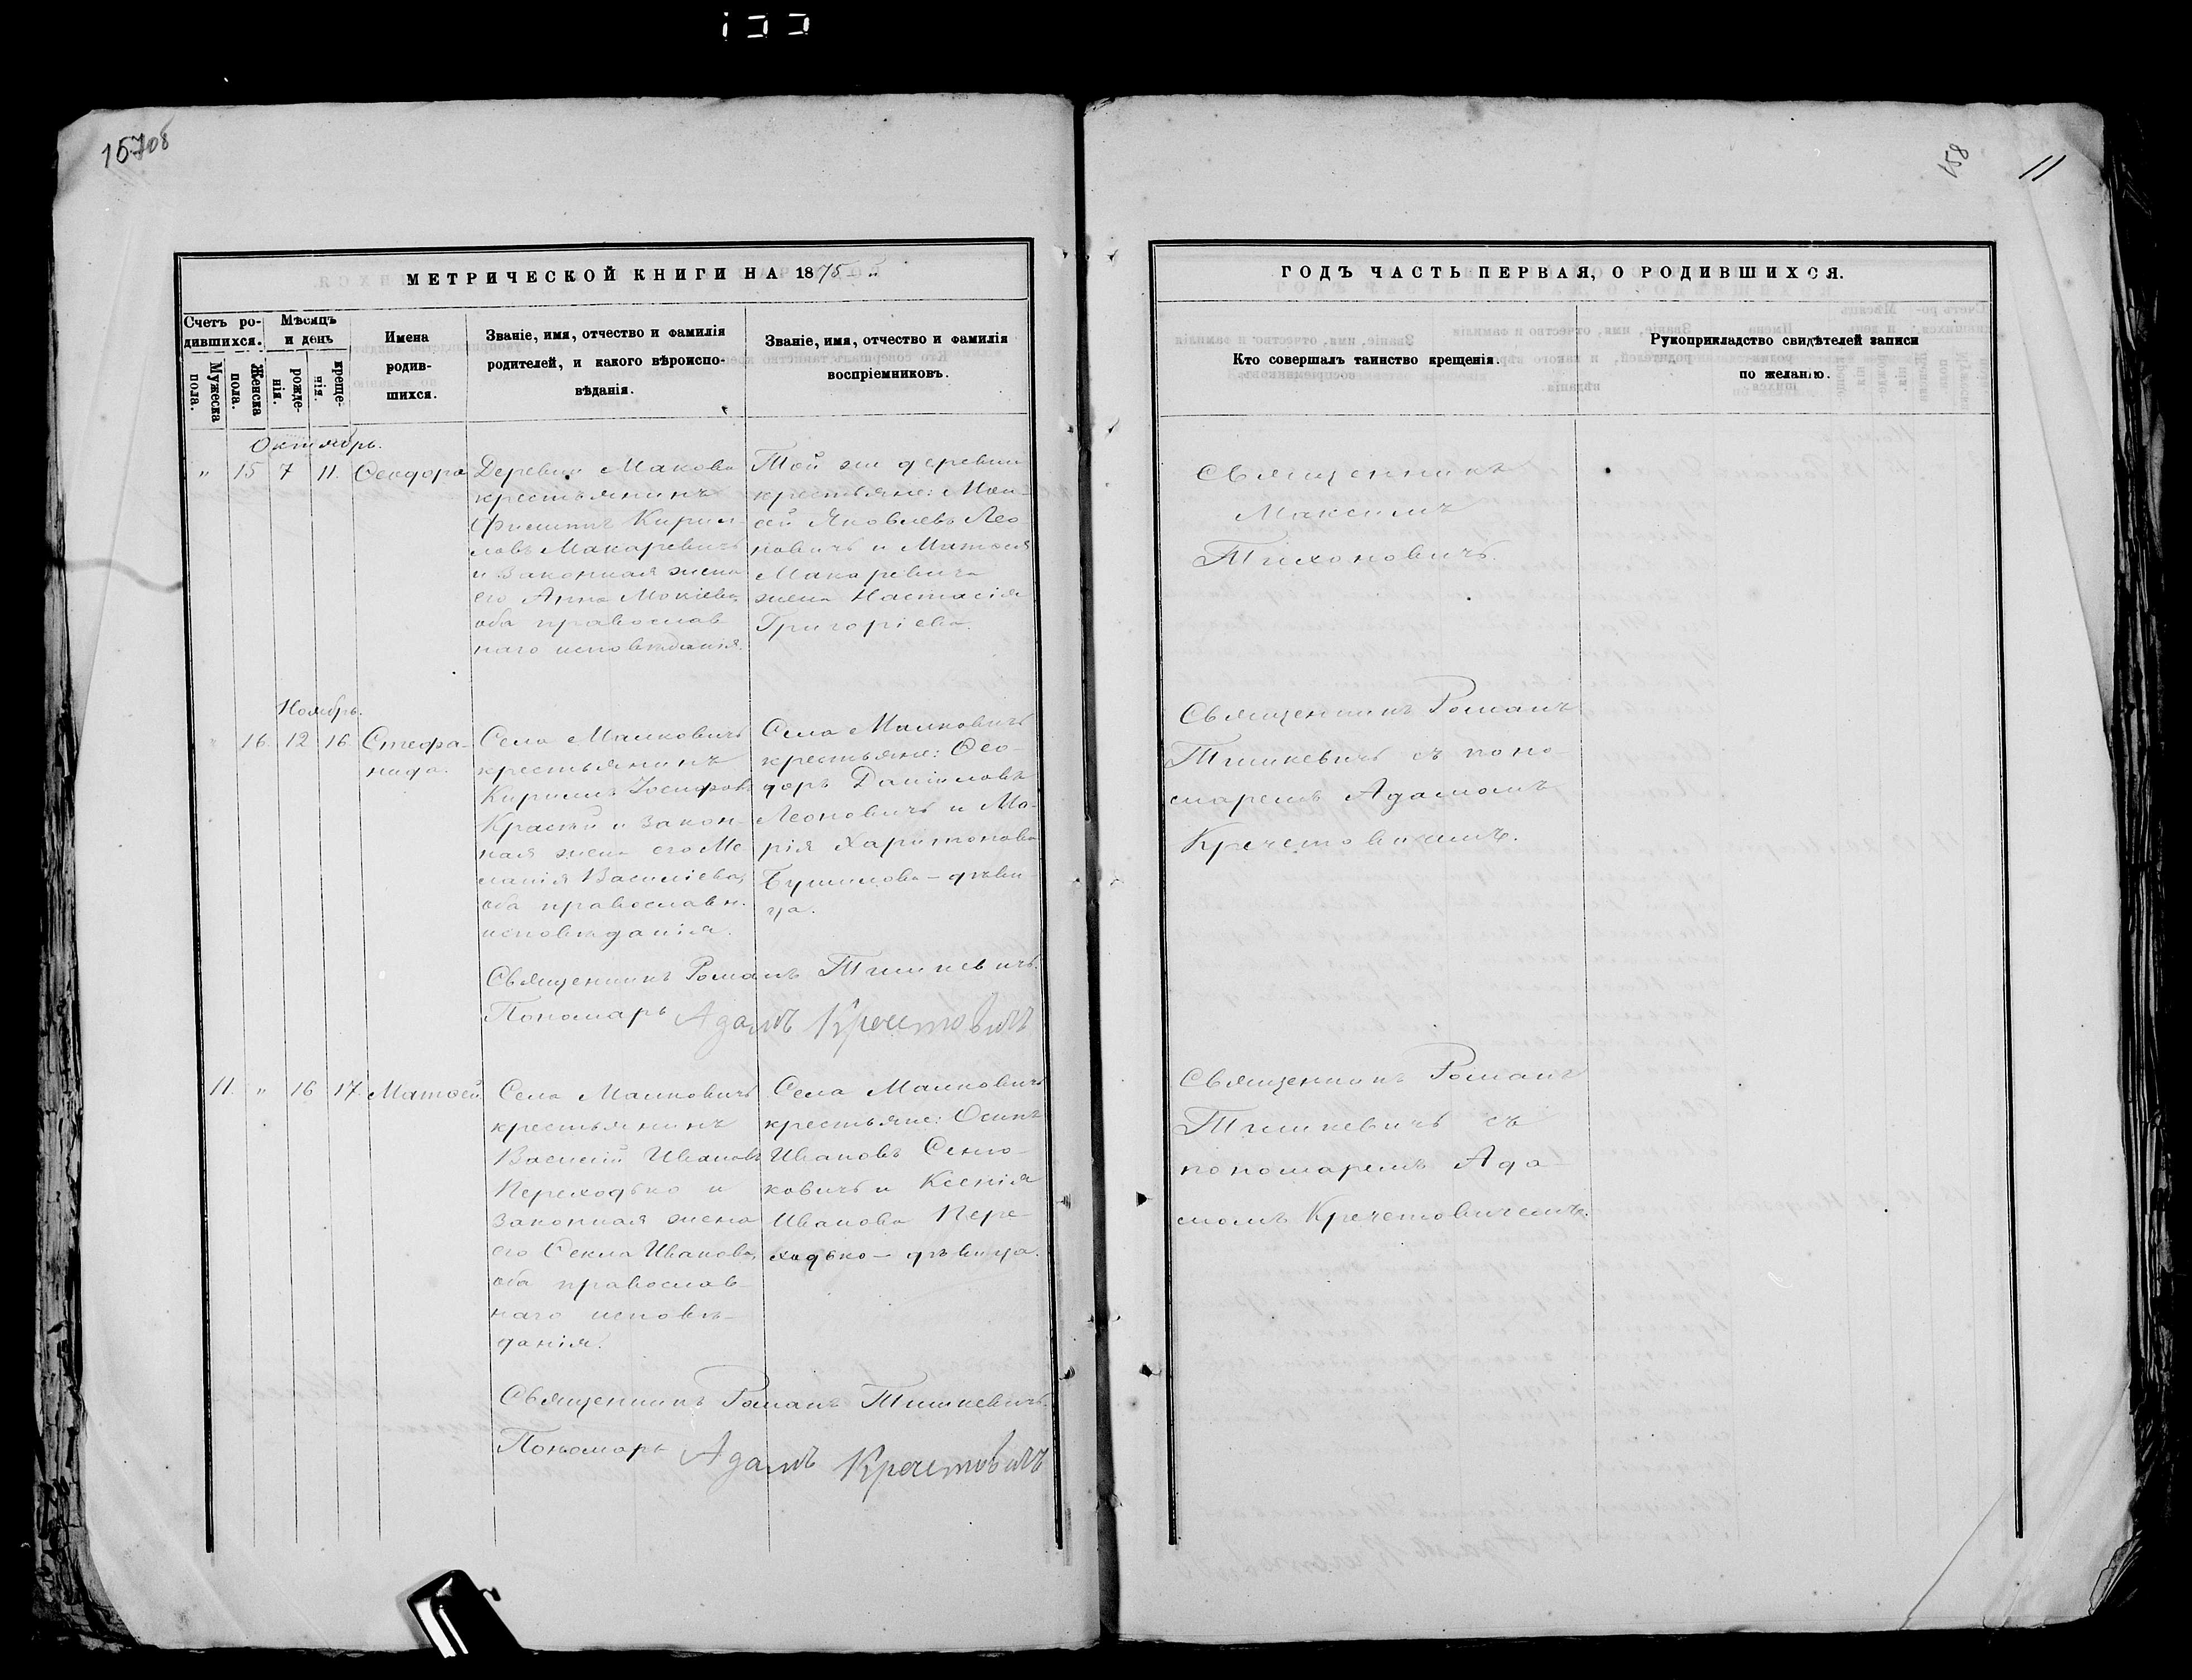 15708
158
11
МЕТРИЧЕСКОЙ КНИГИ НА 1875
ГОДЪ ЧАСТЬ ПЕРВАЯ, О РОДИВШИХСЯ.
Счетъ ро-
дившихся.
Мужеска
пола.
Женска
пола.
Мѣсяцъ
и день
рожде-
нія.
креще-
нія.
Имена
родив-
шихся.
Званіе, имя, отчество и фамилія
родителей, и какого вѣроиспо-
вѣданія.
Званіе, имя, отчество и фамилія
воспріемниковъ.
Кто совершалъ таинство крещенія.
Рукоприкладство свидѣтелей записи
по желанію.
Октябрь.
" 15 7 11. Ѳеодора
Деревни Макова
крестьянинъ
Филиппъ Кирил
ловъ Макаревичъ
и законная жена
его Анна Мокіева,
оба православ
наго исповѣданія.
Той же деревни
крестьяне: Мои-
сей Яковлевъ Лео
новичъ и Матѳея
Макаревича
жена Настасія
Григоріева.
Священникъ
Максимъ
Тихоновичъ.
Ноябрь.
" 16. 12 16 Стефа-
нида.
Села Малковичъ
крестьянинъ
Кириллъ Іосифовъ
Красный и закон-
ная жена его Ме
ланія Василіева,
оба православн.
исповѣданія.
Села Малковичъ
крестьяне: Ѳео-
доръ Даніиловъ
Леоновичъ и Ма-
рія Харитонова
дѣви
ца.
Священникъ Романъ
Тишкевичъ съ поно-
маремъ Адамомъ
Кречетовичемъ.
Священникъ Романъ Тишкевичъ.
Пономарь Адамъ Кречетовичъ
11. " 16 17. Матѳей
Села Малковичъ
крестьянинъ
Василій Ивановъ
Переходько и
законная жена
его Ѳекла Иванова,
оба православ-
наго исповѣ-
данія.
Села Малковичъ
крестьяне: Осипъ
Ивановъ Сеню-
ковичъ и Ксенія
Иванова Пере-
ходько — дѣвица.
Священникъ Романъ
Тишкевичъ съ
пономаремъ Ада-
момъ Кречетовичемъ.
Священникъ Романъ Тишкевичъ.
Пономарь Адамъ Кречетовичъ